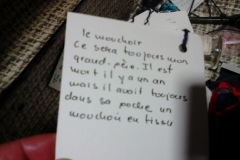 le mouchoir
ce sera toujours mon
grand-père. Il est
mort il y a un an
mais il avait toujours
dans sa poche un
mouchoir en tissu